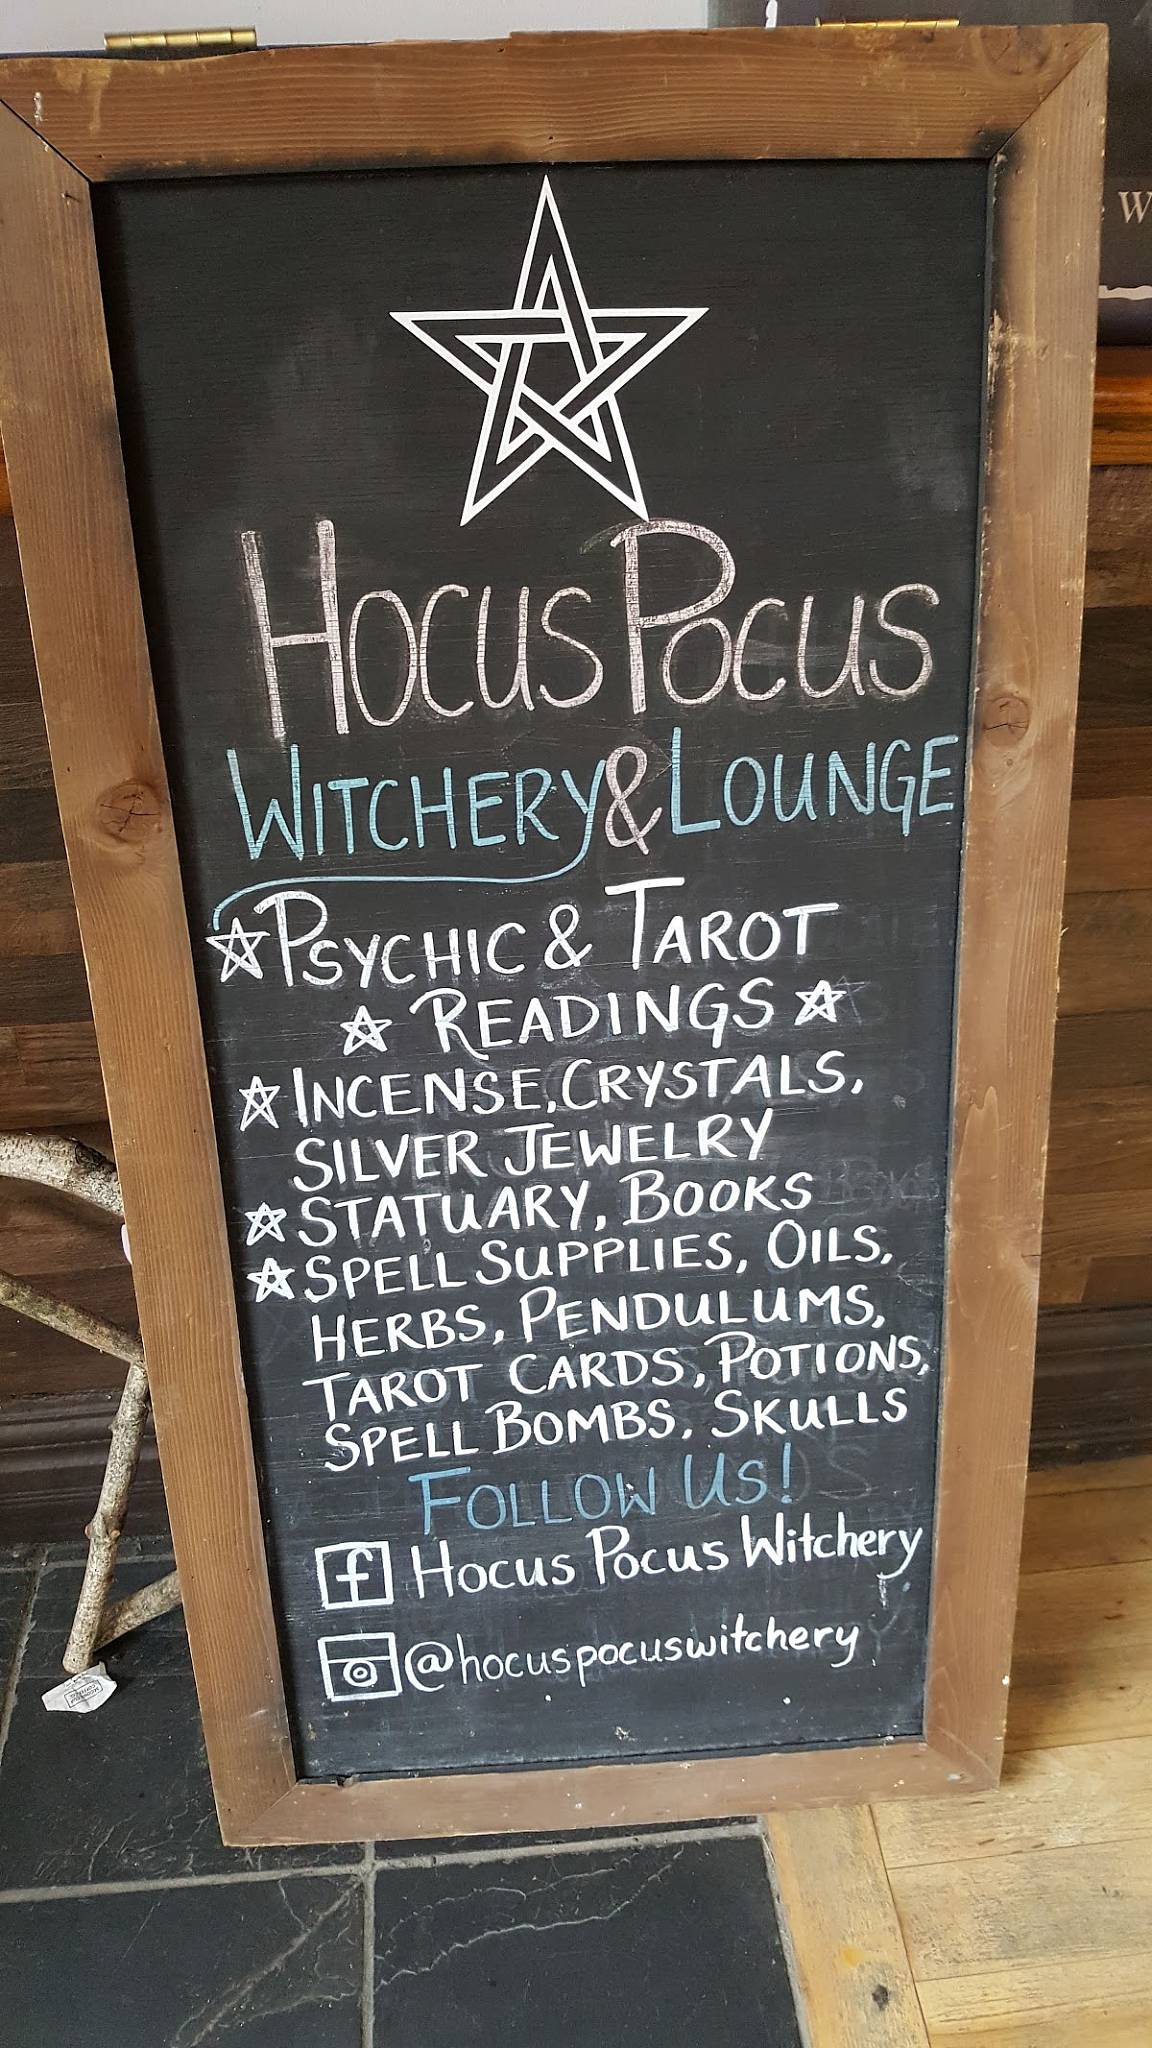 Hocus Pocus
WITCHERY & LOUNGE
PSYCHIC & TAROT
READINGS
INCENSE, CRYSTALS,
SILVER JEWELRY
STATUARY, BOOKS
SPELL SUPPLIES, OILS,
HERBS, PENDULUMS,
TAROT CARDS, POTIONS,
SPELL BOMBS, SKULLS
FOLLOW US!
f Hocus Pocus Witchery
@hocuspocuswitchery
W